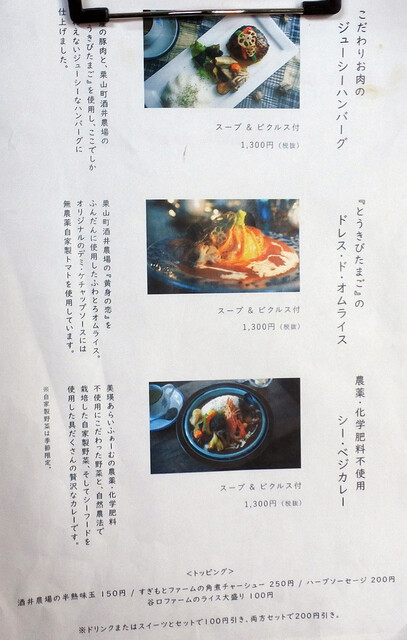 こだわりお肉の
ジューシーハンバーグ
スープ & ピクルス付
1,300円(税抜)
産の豚肉と、栗山町酒井農場の
うきびたまご』を使用し、ここでしか
えないジューシーなハンバーグに
仕上げました。
『とうきびたまご』の
ドレス・ド・オムライス
スープ & ピクルス付
1,300円(税抜)
栗山町酒井農場の『黄身の恋』を
ふんだんに使用したふわとろオムライス。
オリジナルのデミ・ケチャップソースには
無農薬自家製トマトを使用しています。
農薬・化学肥料不使用
シー・ベジカレー
スープ & ピクルス付
1,300円(税抜)
美瑛あらいふぁーむの農薬・化学肥料
不使用にこだわった野菜と、自然農法で
栽培した自家製野菜、そしてシーフードを
使用した具だくさんの贅沢なカレーです。
※自家製野菜は季節限定。
<トッピング>
酒井農場の半熟味玉 150円 / すぎもとファームの角煮チャーシュー 250円 / ハーブソーセージ 200円
谷口ファームのライス大盛り 100円
※ドリンクまたはスイーツとセットで100円引き、両方セットで200円引き。